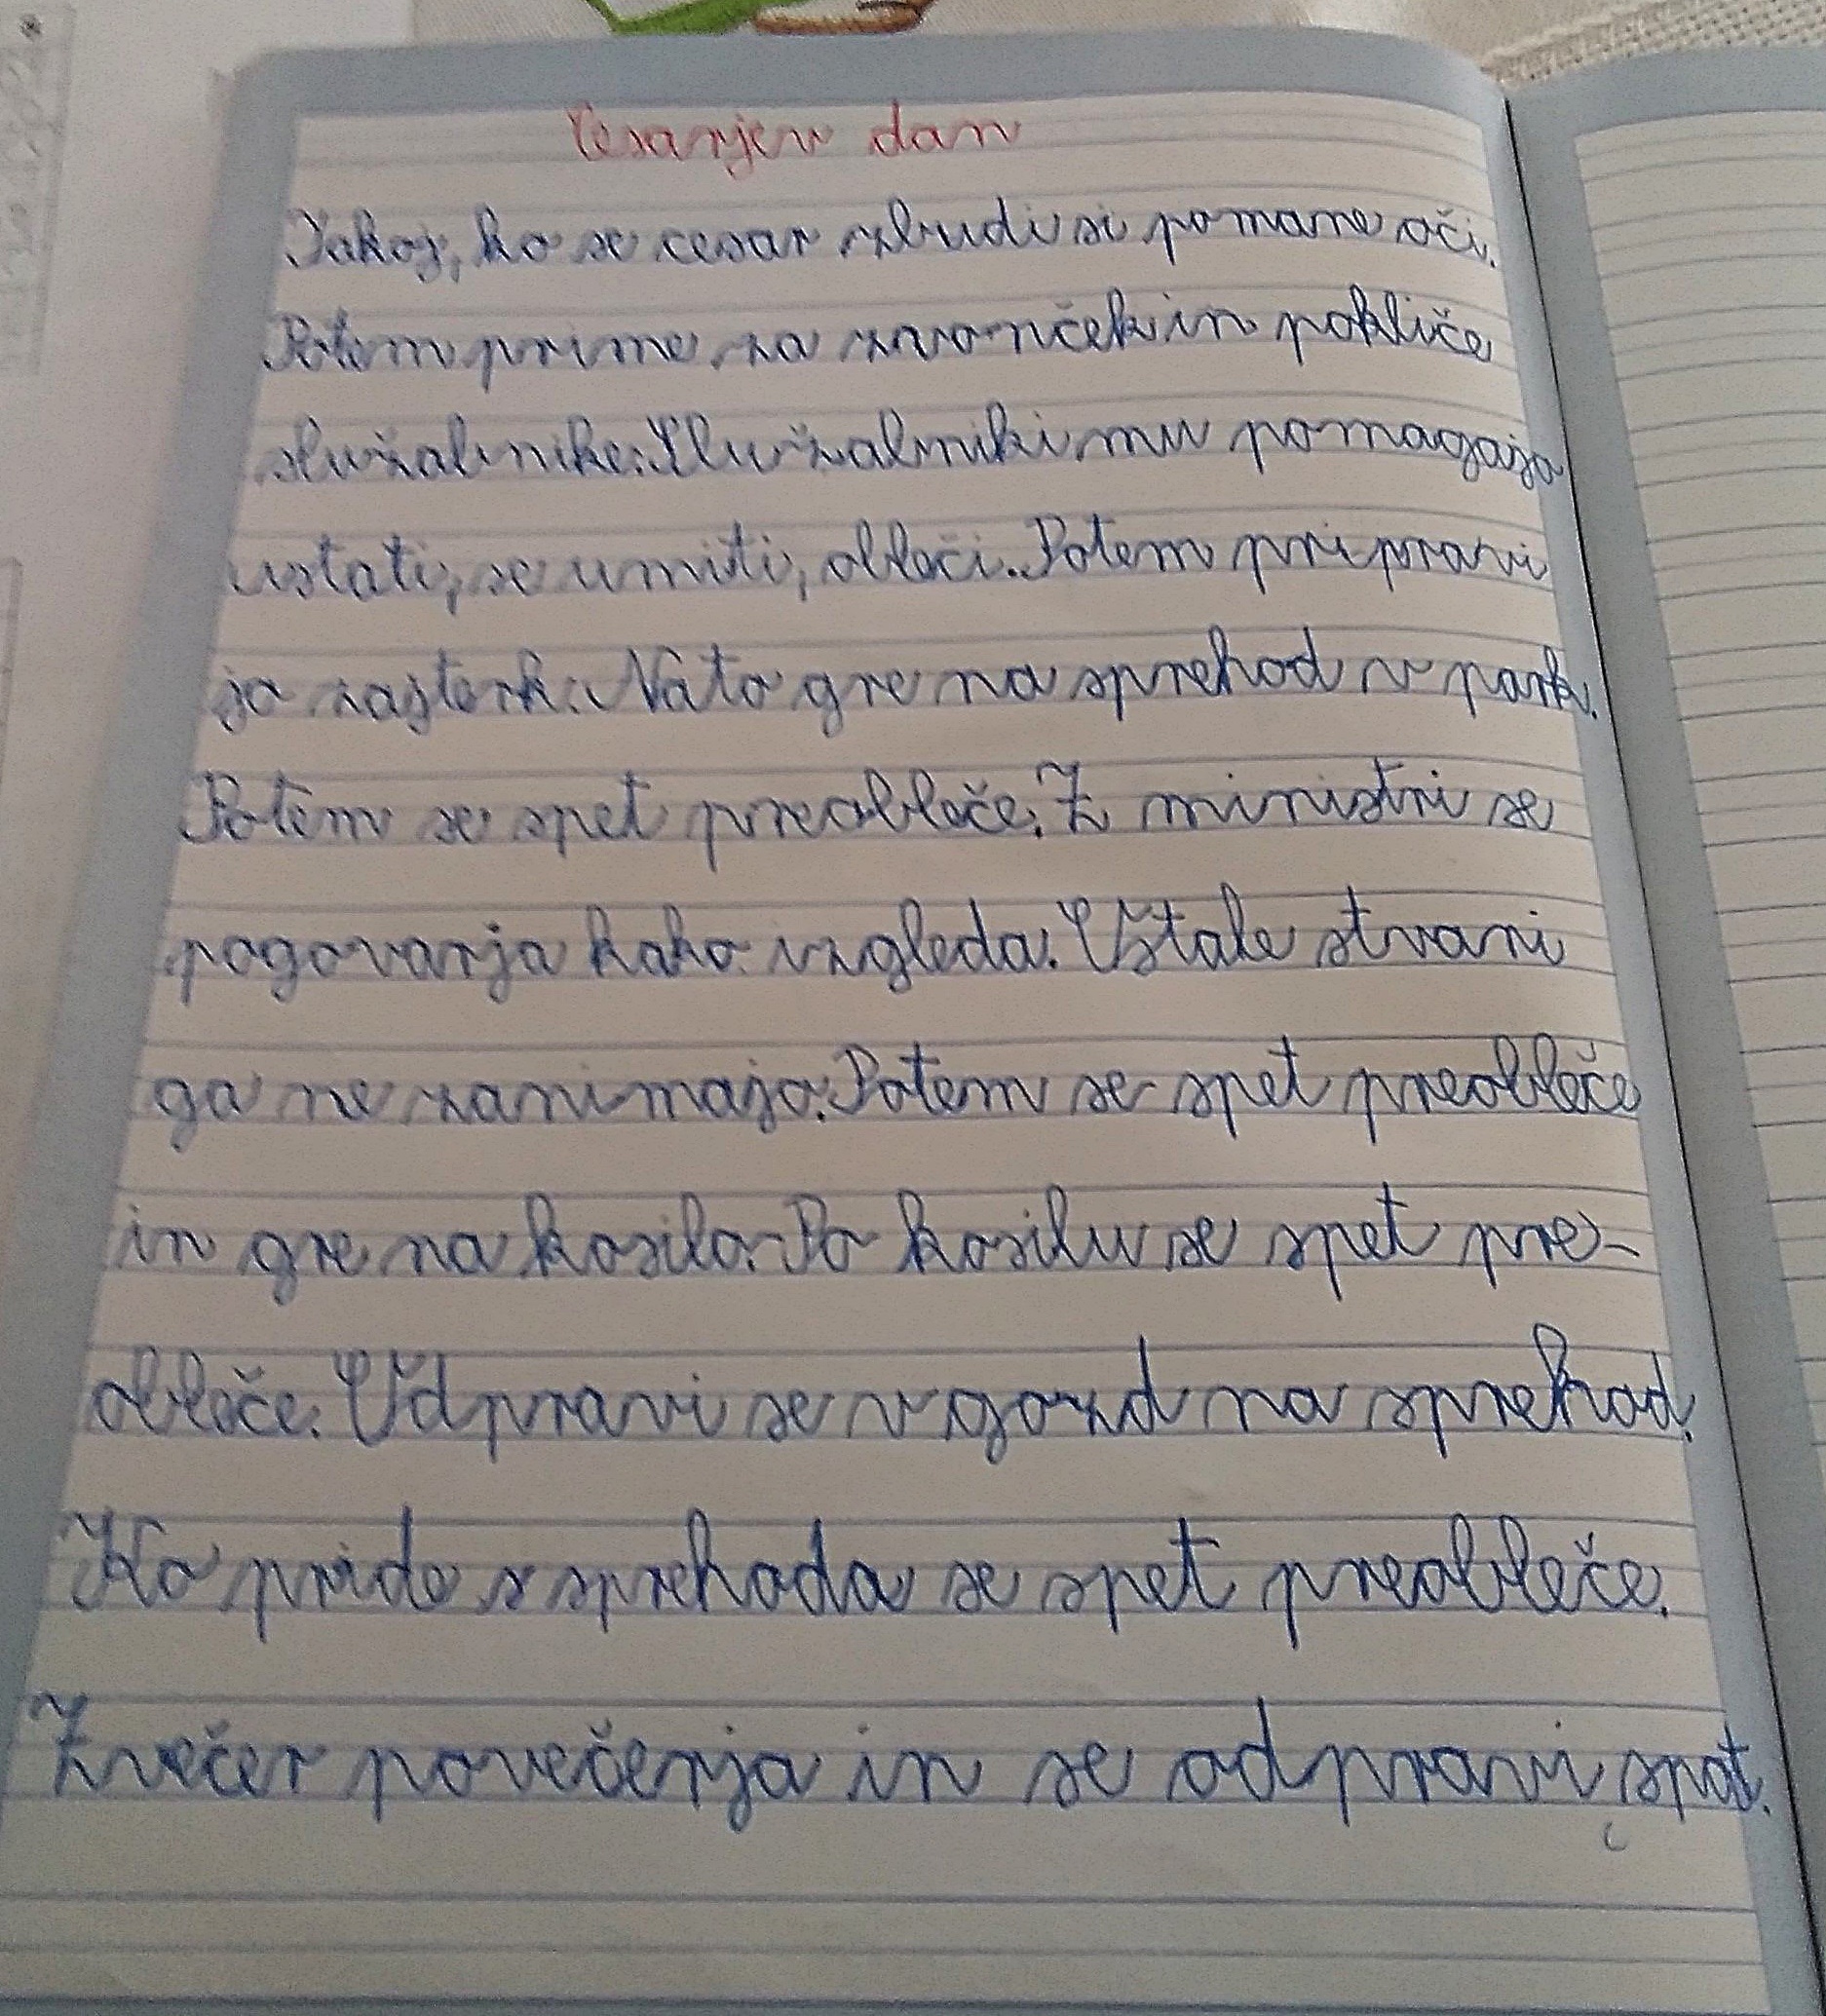 Cesarjev dan
Takoj, ko se cesar zbudi si pomane oči.
Potem prime za zvonček in pokliče
služabnike. Služabniki mu pomagajo
ustati, se umiti, obleči. Potem pripravi
jo zajterk. Nato gre na sprehod v park.
Potem se spet preobleče. Z ministri se
pogovarja kako izgleda. Ostale stvari
ga ne zanimajo. Potem se spet preobleče
in gre na kosilo. Po kosilu se spet pre-
obleče. Odpravi se v gozd na sprehod.
Ko pride s sprehoda se spet preobleče.
Zvečer povečerja in se odpravi spat.